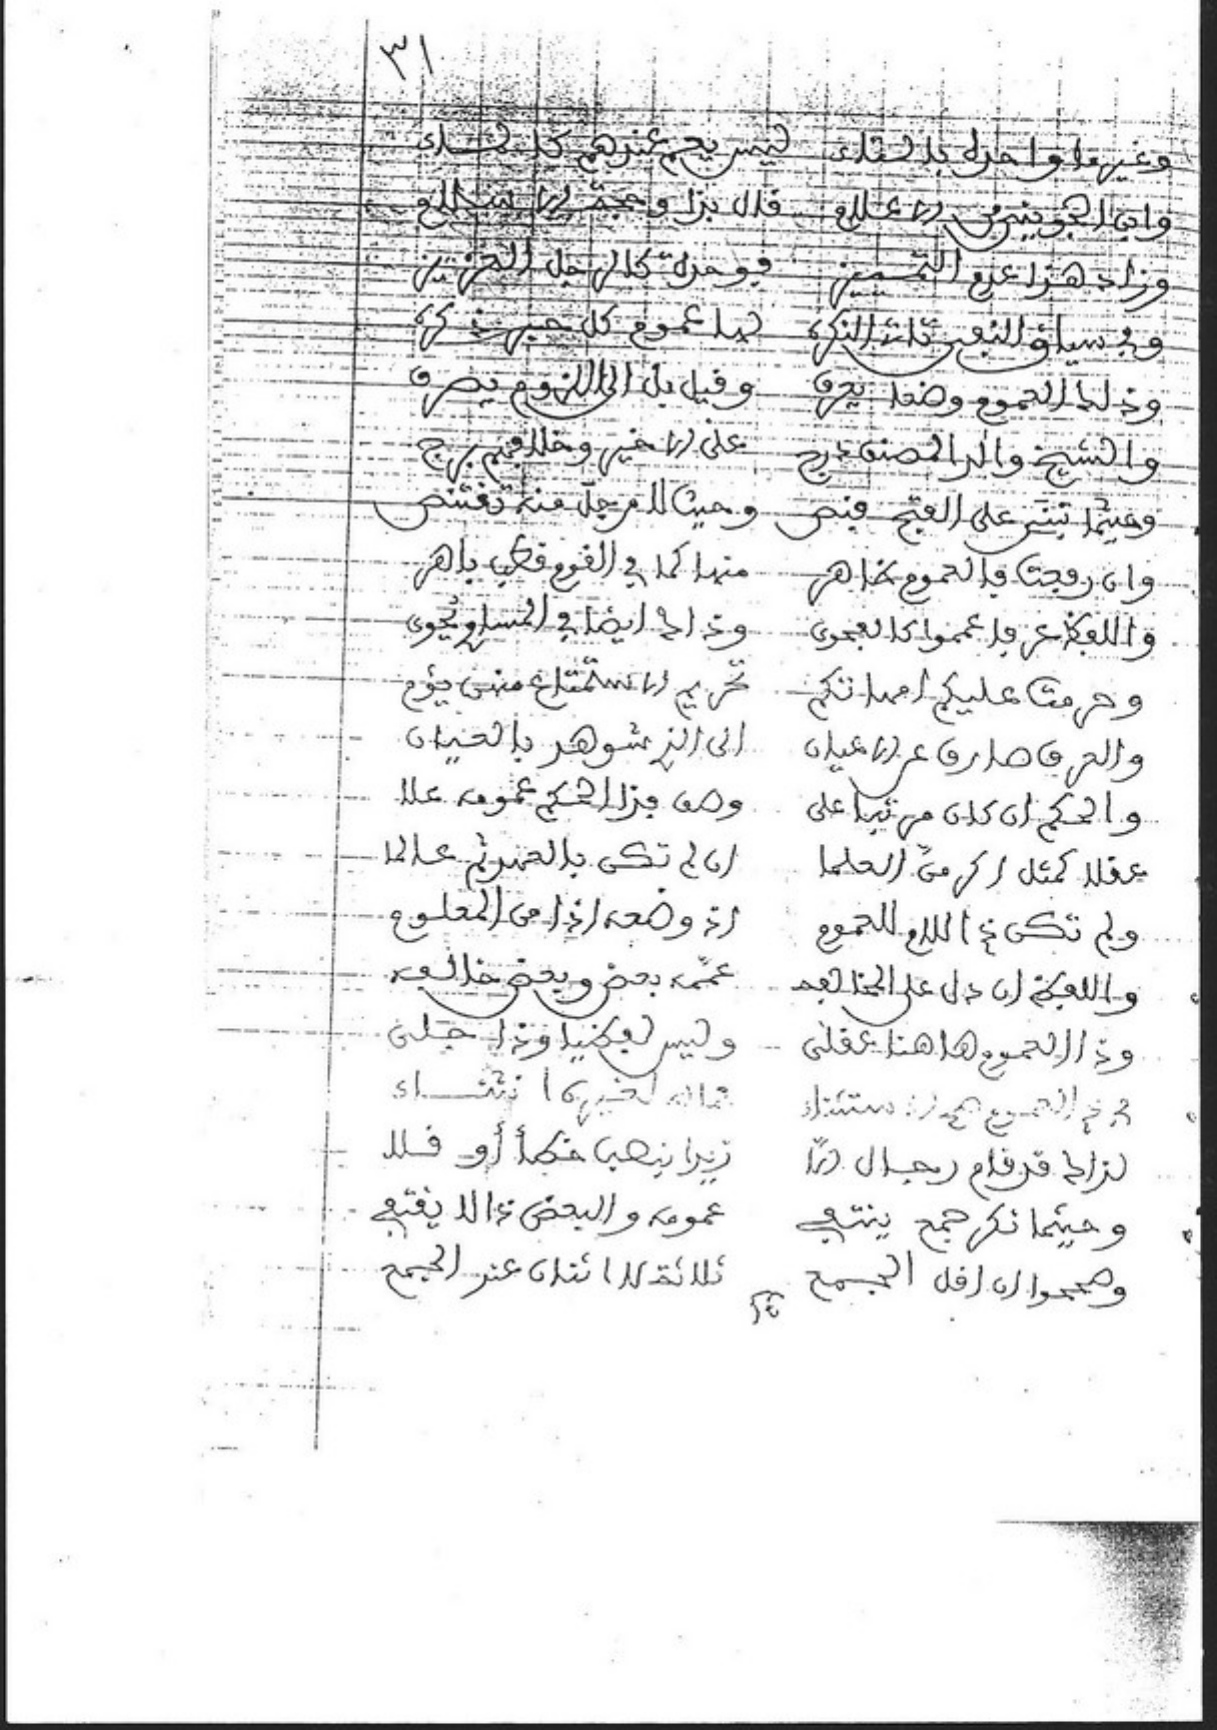 ٣١
وغيرها واحدة بالتاء ليس يعم عندهم كالشاء
وابن الجويني من الاعلام قال بذا وحجة الاسلام
وزاد هذا عدم التمييز في وحدة كالرجل العزيز
وفي سياق النفي تلك النكره لها عموم كل حبر ذكره
وذلك العموم وضعا يعرف وقيل بل الى اللزوم يصرف
والشيخ والد المصنف درج على الاخير وخلافهم برج
وحيثما تبنى على الفتح فنص وحيث لا من جل منه تقتنص
وان رفعت فالعموم ظاهر منها كما في القوم قطب باهر
واللفظ عرفا عمموا كالفحوى وذاك ايضا في المساو يحوى
وحرمت عليكم امهاتكم تحريم الاستمتاع منهن يؤم
والعرف صارف عن الاعيان الى الذي شوهد بالعيان
والحكم ان كان مرتبا على وصف فذا الحكم عمومه علا
عقلا كمثل اكرمن العلما ان لم تكن بالعهد ثم عالما
ولم تكن ذا اللام للعموم اذ وضعه اذا من المعلوم
واللفظ ان دل على المخالفه عممه بعض وبعض خالفه
وذا العموم هاهنا عقلى وليس لفظيا وذا جلى
العموم الاستثناء لغيرها انتماء
لذاك قد قام رجال الا زيدا بنصب خطأ أو فلا
وحيثما نكر جمع ينتفي عمومه والبعض ذا لا يقتفي
وصححوا ان اقل الجمع ثلاثة لا اثنان عند الجمع